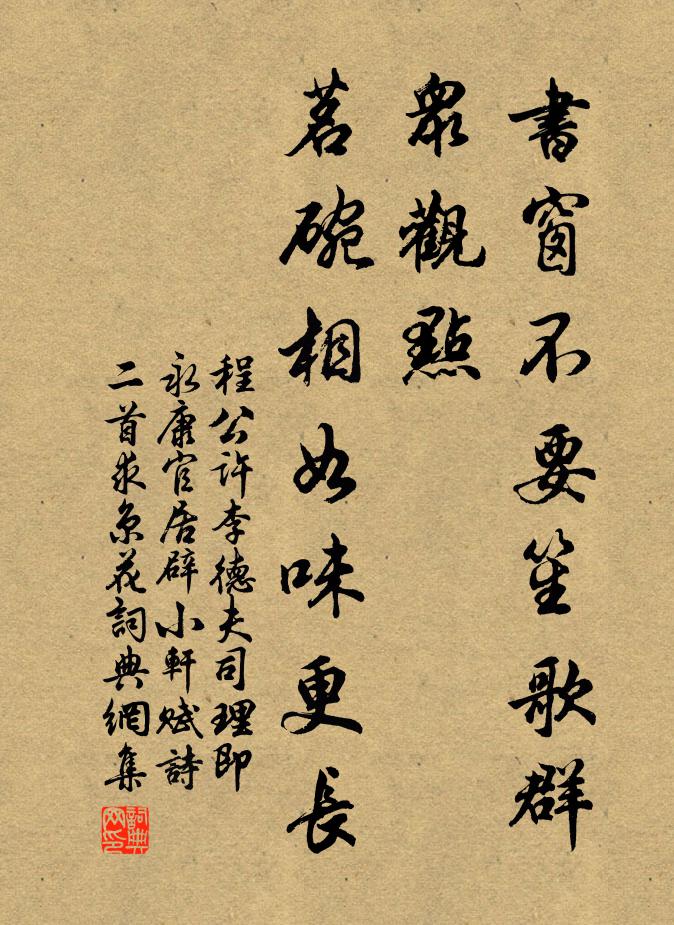 書窗不要笙歌群
眾觀點
茗碗相如味更長
程公許李德夫司理即
永康官居辟小軒賦詩
二首求余花詞典網集
詞典
網印